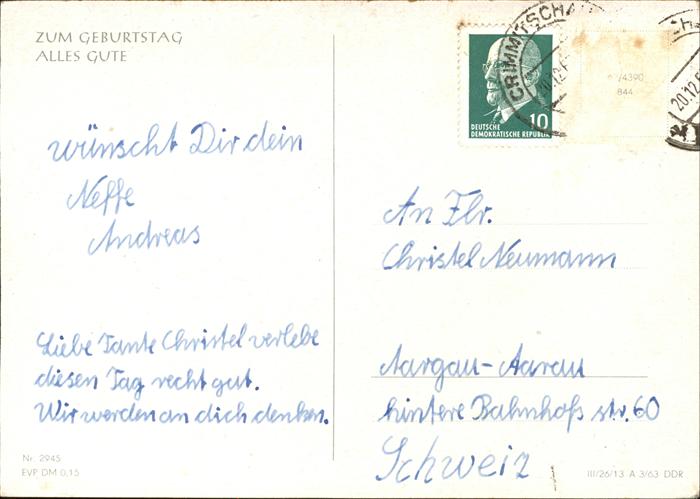 ZUM GEBURTSTAG
ALLES GUTE
wünscht Dir dein
Neffe
Andreas
Liebe Tante Christel verlebe
diesen Tag recht gut.
Wir werden an dich denken.
Nr. 2945
EVP DM 0,15
CRIMMITSCHA
10
DEUTSCHE
DEMOKRATISCHE REPUBLIK
/4390
844
20.12.
An Flr.
Christel Neumann
Aargau-Aarau
hintere Bahnhofs str. 60
Schweiz
III/26/13 A 3/63 DDR